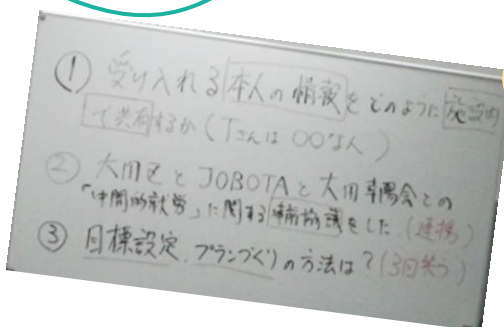 ① 受け入れる本人の情報をどのように施設内
で共有するか(Tさんは〇〇な人)
② 大田区とJOBOTAと大田幸陽会との
「中間的就労」に関する事前協議をした。(連携)
③ 目標設定、プランづくりの方法は?(3回笑う)